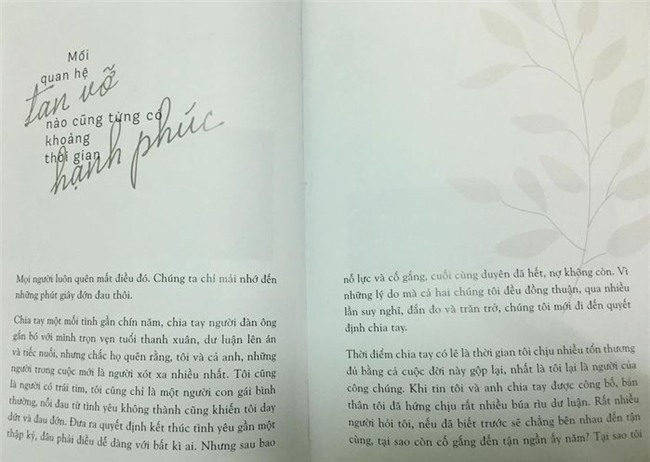 Mối
quan hệ
tan vỡ
nào cũng từng có
khoảng
thời gian
hạnh phúc
Mọi người luôn quên mất điều đó. Chúng ta chỉ mải nhớ đến
những phút giây đớn đau thôi.
Chia tay một mối tình gần chín năm, chia tay người đàn ông
gắn bó với mình trọn vẹn tuổi thanh xuân, dư luận lên án
và tiếc nuối, nhưng chắc họ quên rằng, tôi và cả anh, những
người trong cuộc mới là người xót xa nhiều nhất. Tôi cũng
là người có trái tim, tôi cũng chỉ là một người con gái bình
thường, nỗi đau từ tình yêu không thành cũng khiến tôi day
dứt và đau đớn. Đưa ra quyết định kết thúc tình yêu gần một
thập kỷ, đâu phải điều dễ dàng với bất kì ai. Nhưng sau bao
nỗ lực và cố gắng, cuối cùng duyên đã hết, nợ không còn. Vì
những lý do mà cả hai chúng tôi đều đồng thuận, qua nhiều
lần suy nghĩ, đắn đo và trăn trở, chúng tôi mới đi đến quyết
định chia tay.
Thời điểm chia tay có lẽ là thời gian tôi chịu nhiều tổn thương
đủ bằng cả cuộc đời này gộp lại, nhất là tôi lại là người của
công chúng. Khi tin tôi và anh chia tay được công bố, bản
thân tôi đã hứng chịu rất nhiều búa rìu dư luận. Rất nhiều
người hỏi tôi, nếu đã biết trước sẽ chẳng bên nhau đến tận
cùng, tại sao còn cố gắng đến tận ngần ấy năm? Tại sao tôi